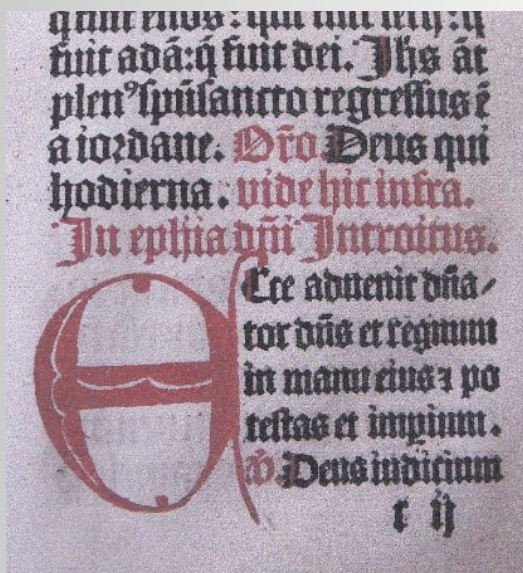 fuit adā: q̄ fuit dei. Jhs āt
plenꝰ spūsancto regressus ē
a iordane. Or̄o. Deus qui
hodierna. vide hic infra.
In ephia dn̄i Introitus.
Ecce aduenit dn̄a/
tor dn̄s et regnum
in manu eius ⁊ po
testas et imꝑium.
Deus iudicium
r ij